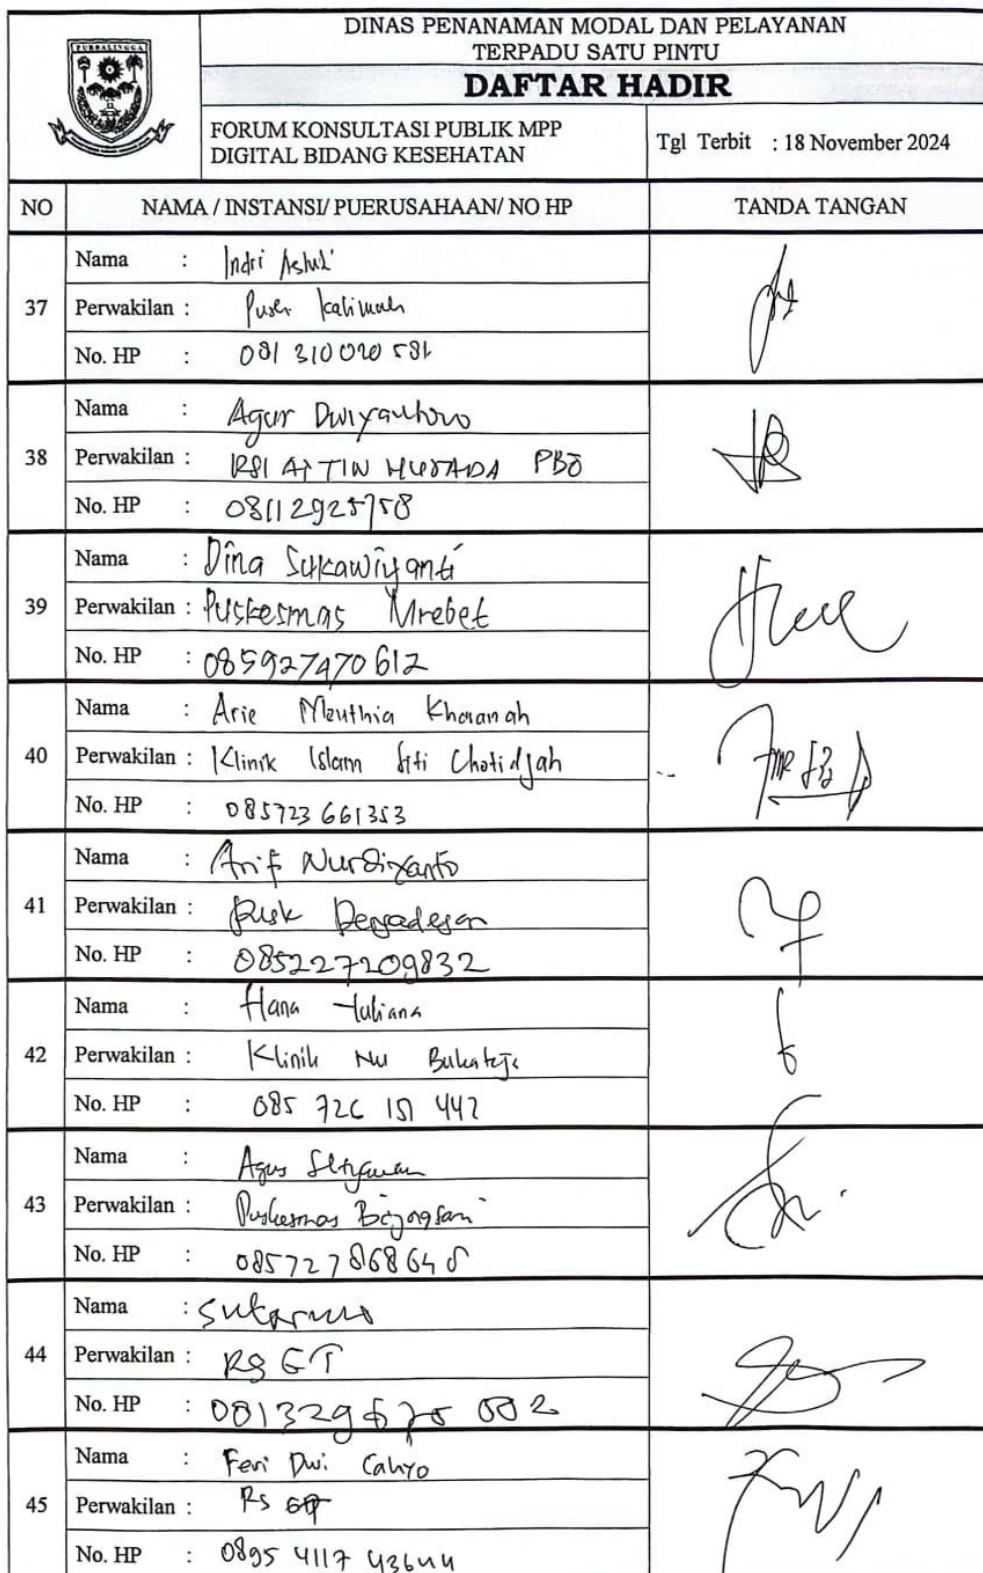 PURBALINGGA
DINAS PENANAMAN MODAL DAN PELAYANAN
TERPADU SATU PINTU
DAFTAR HADIR
FORUM KONSULTASI PUBLIK MPP
DIGITAL BIDANG KESEHATAN
Tgl Terbit : 18 November 2024
NO NAMA / INSTANSI/ PUERUSAHAAN/ NO HP TANDA TANGAN
37
Nama : Indri
Perwakilan : Kalimah
No. HP : 081 310 020
38
Nama : Agus Dwiyantoro
Perwakilan : RSI AT TIN HUSADA PBG
No. HP : 08112925758
39
Nama : Dina Sukawiyanti
Perwakilan : Puskesmas Mrebet
No. HP : 085927470612
40
Nama : Arie Meuthia Khasanah
Perwakilan : Klinik Islam Siti Chotidjah
No. HP : 085723661353
41
Nama : Arif Nurdiyanto
Perwakilan : Pusk Pengadegan
No. HP : 085227209832
42
Nama : Hana Yuliana
Perwakilan : Klinik NU Bukateja
No. HP : 085 726 151 442
43
Nama : Agus Setyawan
Perwakilan : Puskesmas Bojongsari
No. HP :
44
Nama : Sukarno
Perwakilan : RS GT
No. HP :
45
Nama : Feri Dwi Cahyo
Perwakilan : RS
No. HP : 0895 4117 43644